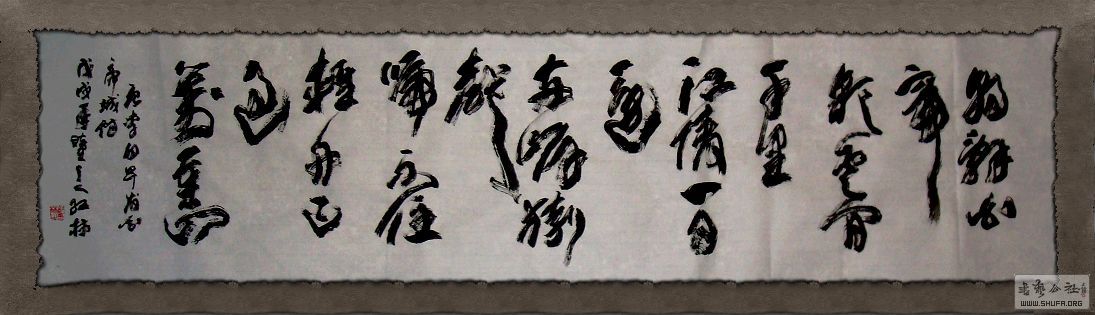 朝辭白
帝
彩雲間
千里
江陵一日
還
兩岸猿
聲
啼不住
輕舟已
過
萬重山
唐李白早發白
帝城詩
戊戌年
書藝公社
WWW.SHUFA.ORG